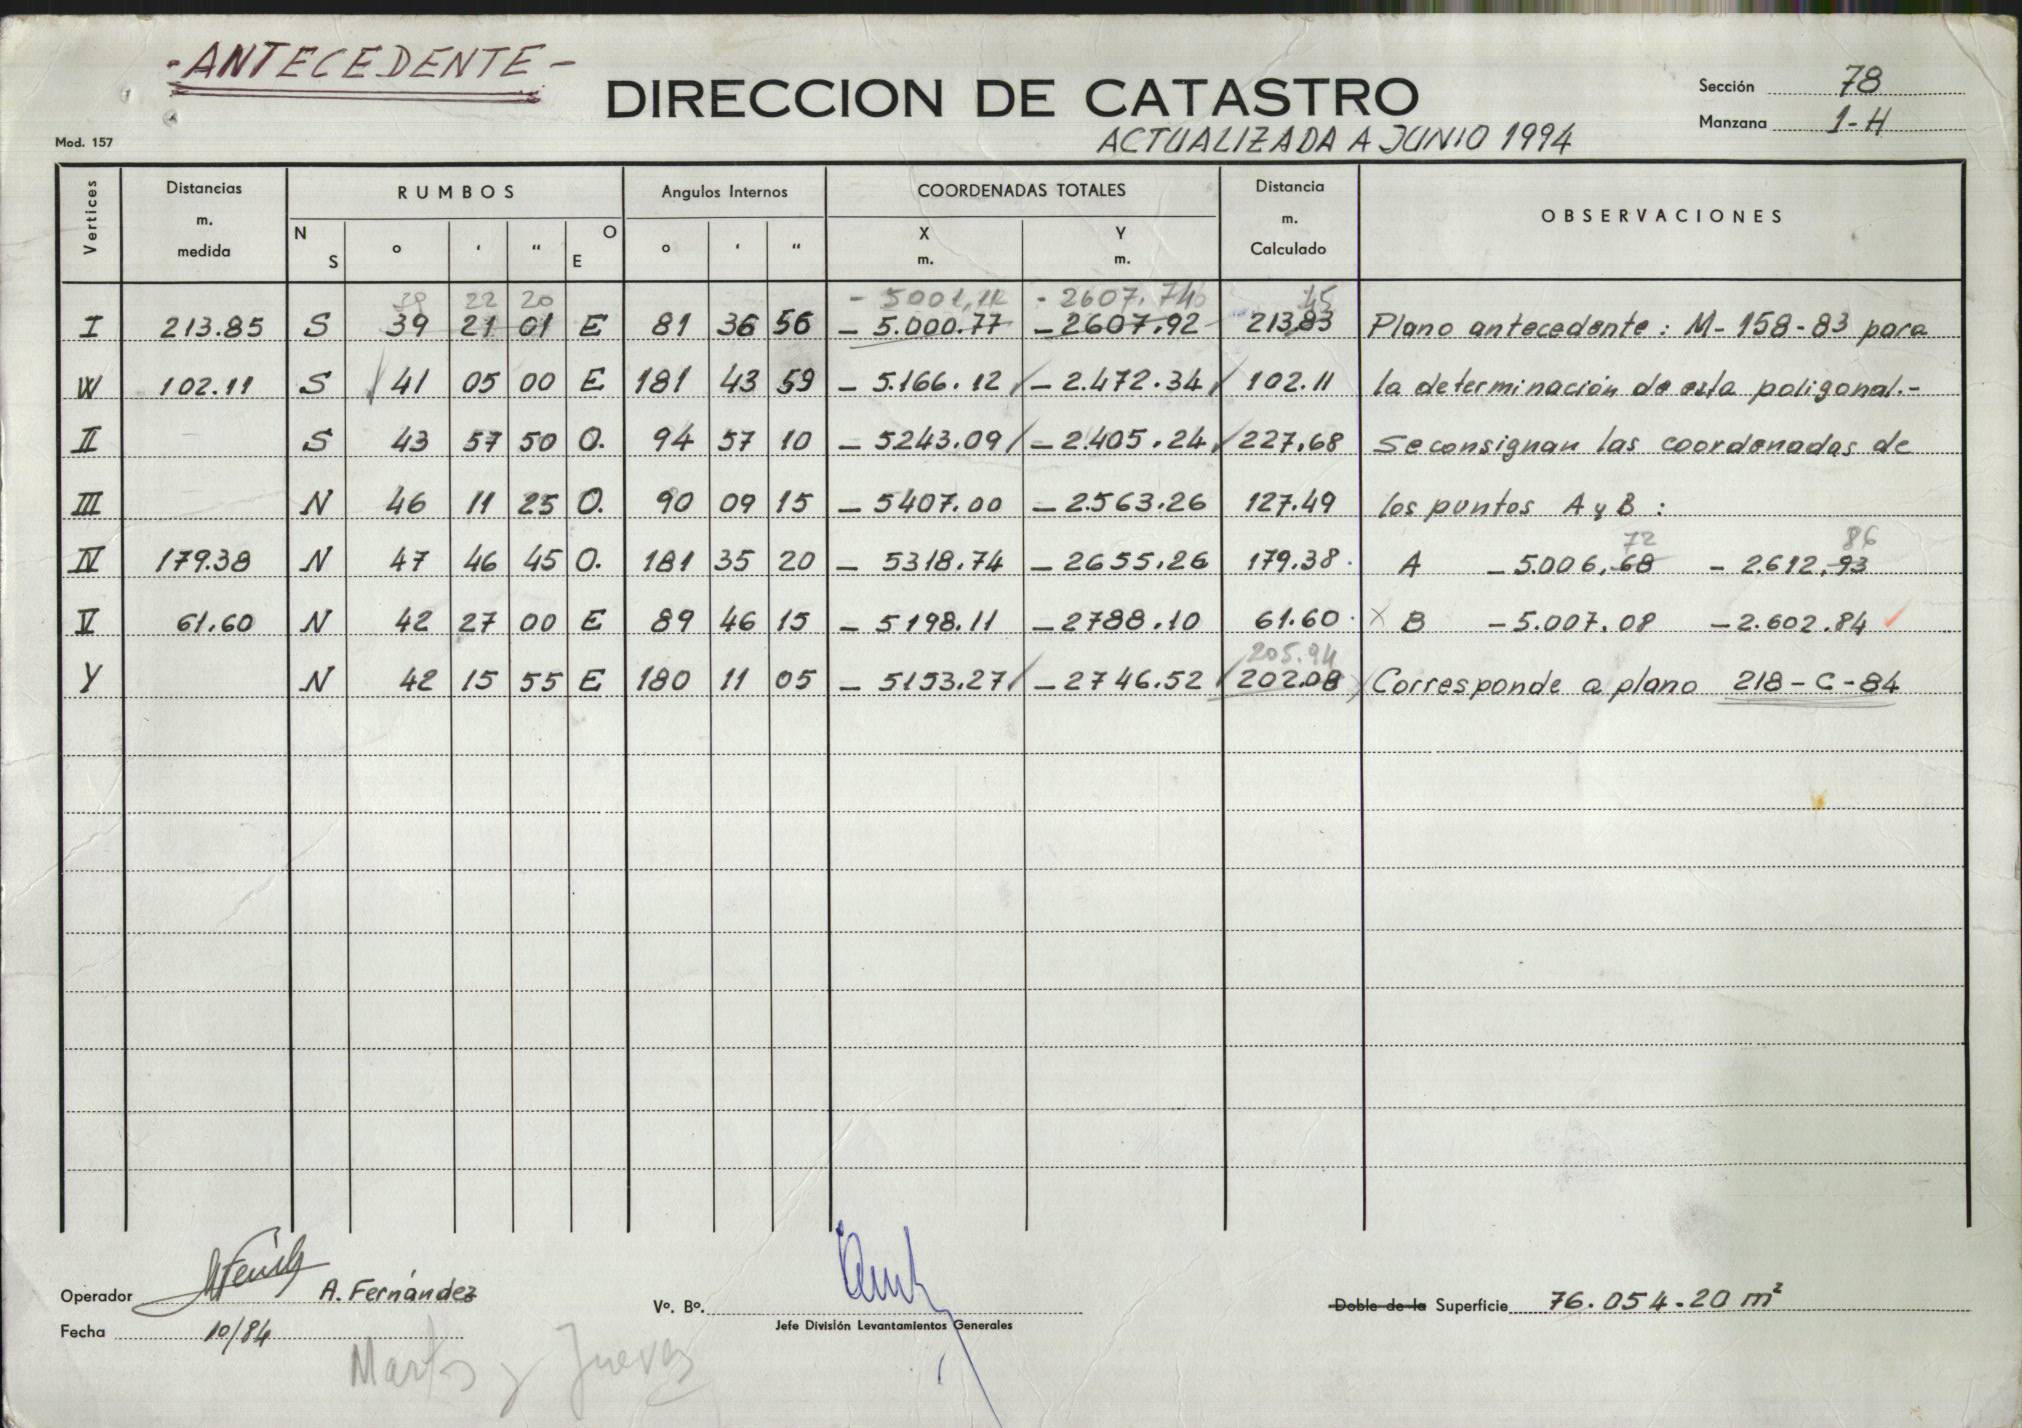 -ANTECEDENTE-
DIRECCION DE CATASTRO
Sección 78
Manzana 1-H
ACTUALIZADA A JUNIO 1994
Mod. 157
Vertices Distancias m. medida RUMBOS Angulos Internos COORDENADAS TOTALES Distancia m. Calculado OBSERVACIONES
N S ° ' " O E ° ' " X m. Y m.
22 20 - 5001,11 - 2607.74 45
I 213.85 S 39 21 01 E 81 36 56 - 5.000.77 - 2607.92 213.83 Plano antecedente: M-158-83 para
W 102.11 S 41 05 00 E 181 43 59 - 5.166.12 - 2.472.34 102.11 la determinación de esta poligonal.-
II S 43 57 50 O. 94 57 10 - 5243.09 - 2.405.24 227.68 se consignan las coordenadas de
III N 46 11 25 O. 90 09 15 - 5407.00 - 2.563.26 127.49 los puntos A y B :
72 86
IV 179.38 N 47 46 45 O. 181 35 20 - 5318.74 - 2655.26 179.38 A - 5.006.68 - 2.612.93
V 61.60 N 42 27 00 E 89 46 15 - 5198.11 - 2788.10 61.60 x B - 5.007.08 - 2.602.84
205.94
Y N 42 15 55 E 180 11 05 - 5153.27 - 2746.52 202.08 Corresponde a plano 218-C-84
Operador A. Fernández
Vº. Bº.
Doble de la Superficie 76.054.20 m²
Fecha 10/84
Jefe División Levantamientos Generales
Martes y Jueves